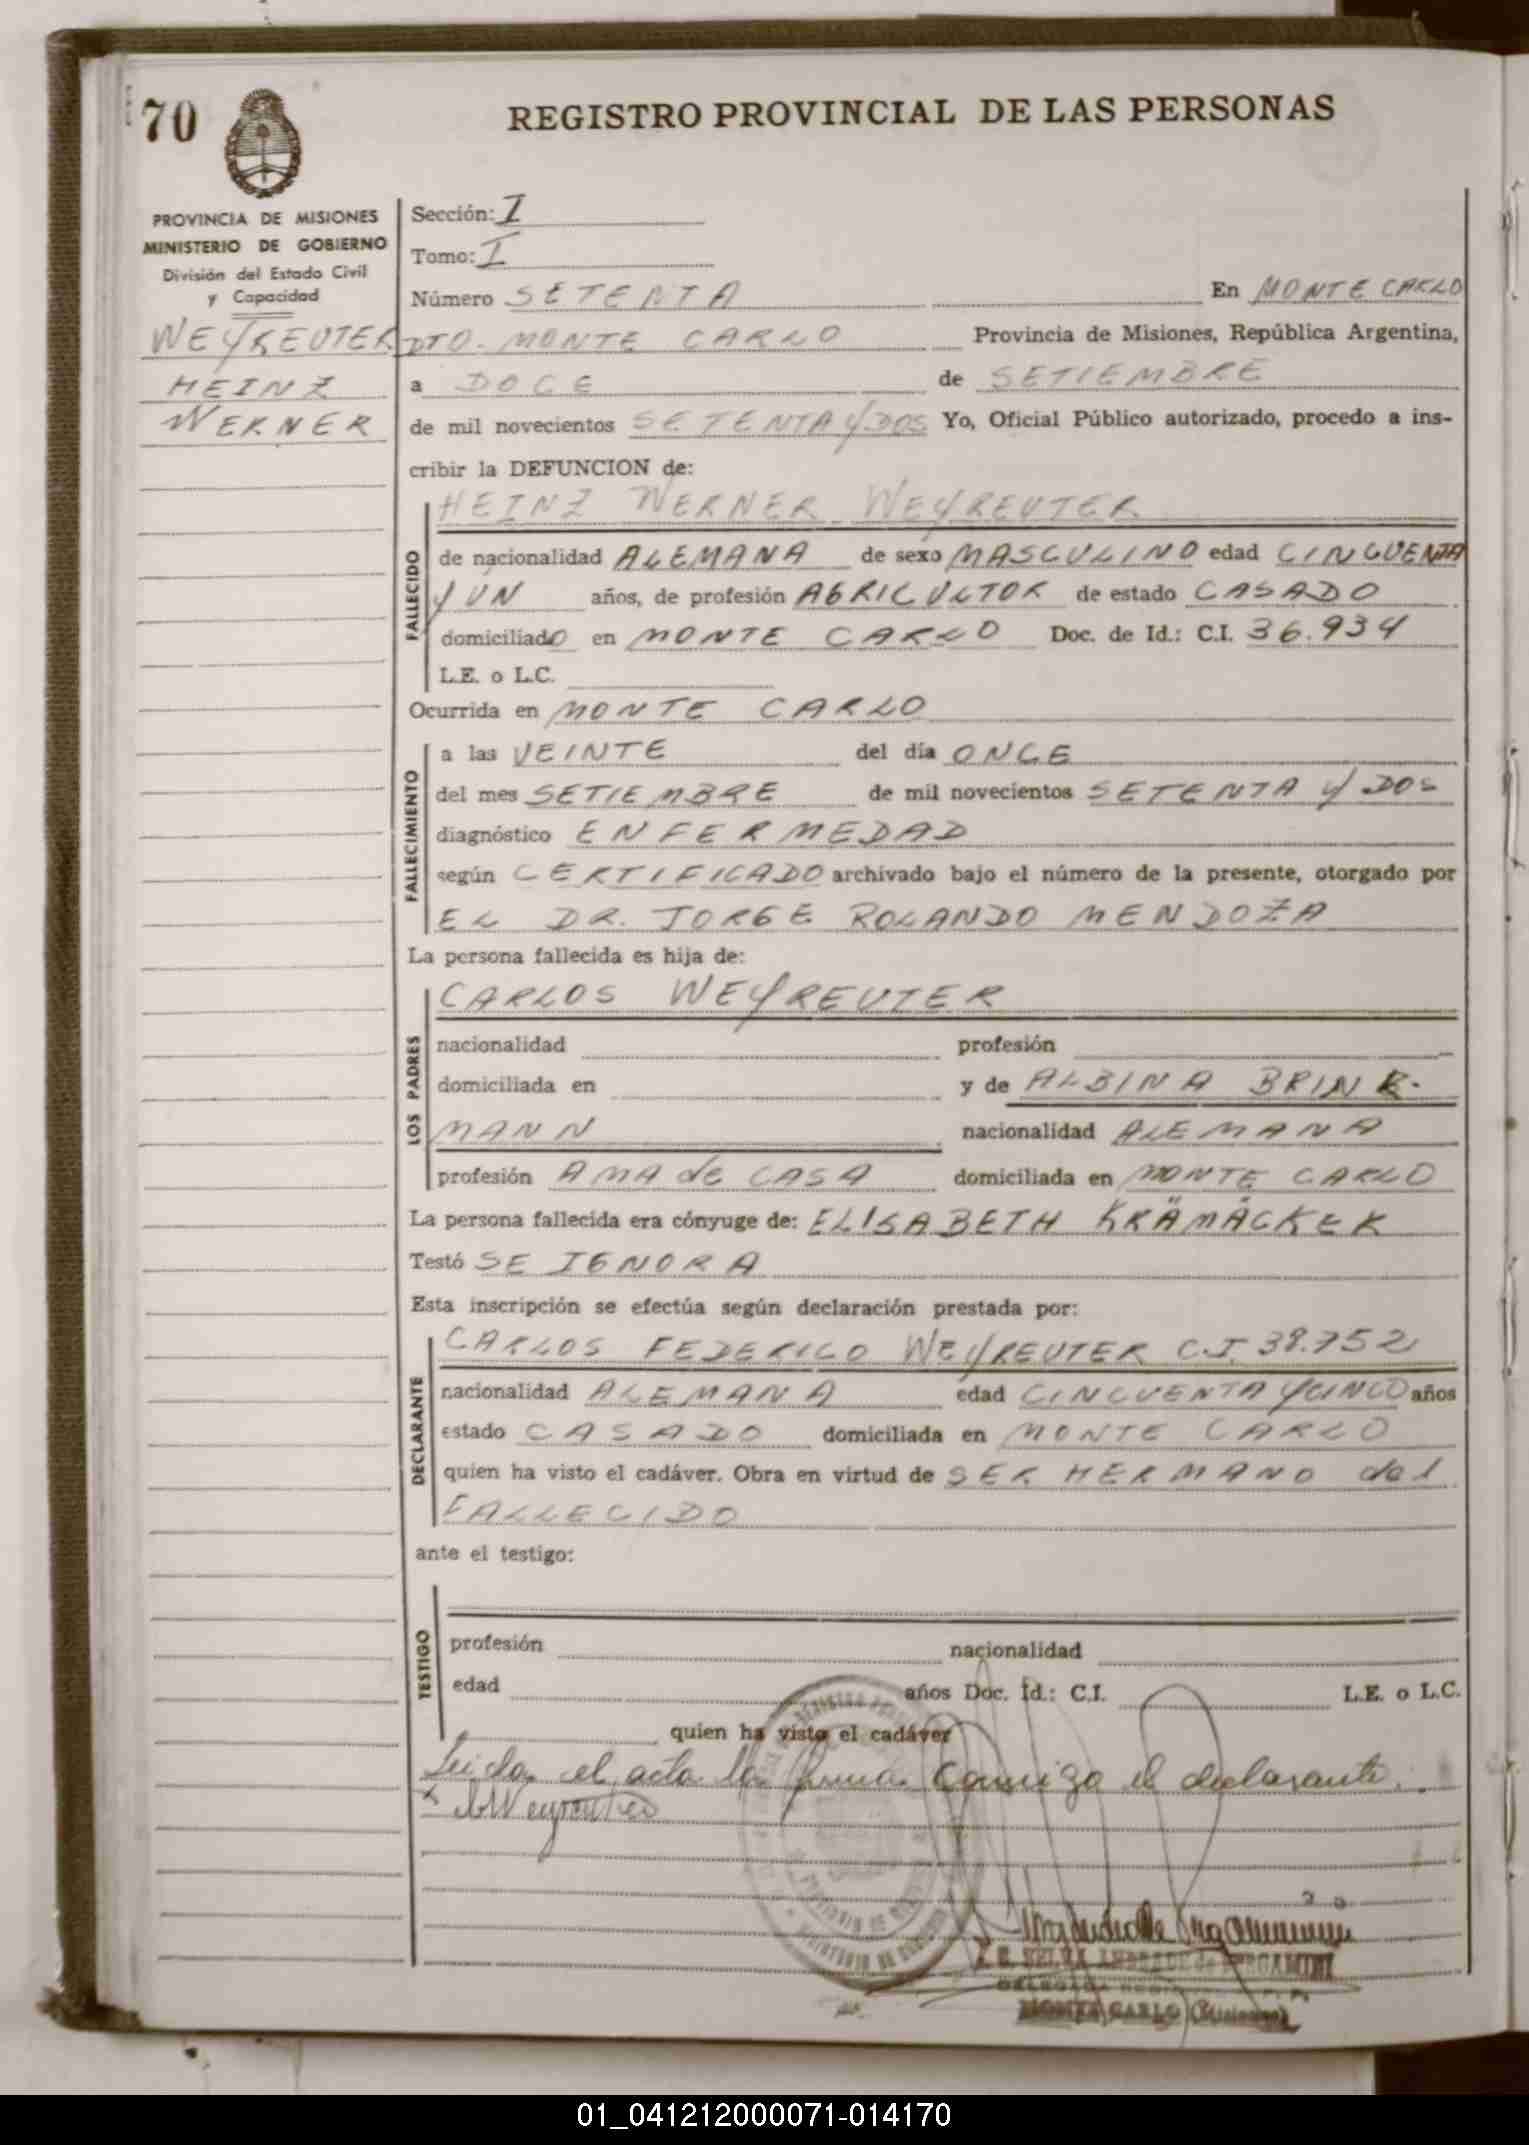 70
REGISTRO PROVINCIAL DE LAS PERSONAS
PROVINCIA DE MISIONES
MINISTERIO DE GOBIERNO
División del Estado Civil
y Capacidad
WEYREUTER
HEINZ
WERNER
Sección: I
Tomo: I
Número SETENTA En MONTE CARLO
DTO. MONTE CARLO Provincia de Misiones, República Argentina,
a DOCE de SETIEMBRE
de mil novecientos SETENTA Y DOS Yo, Oficial Público autorizado, procedo a ins-
cribir la DEFUNCION de:
HEINZ WERNER WEYREUTER
FALLECIDO
de nacionalidad ALEMANA de sexo MASCULINO edad CINCUENTA
Y UN años, de profesión AGRICULTOR de estado CASADO
domiciliado en MONTE CARLO Doc. de Id.: C.I. 36.934
L.E. o L.C.
Ocurrida en MONTE CARLO
FALLECIMIENTO
a las VEINTE del día ONCE
del mes SETIEMBRE de mil novecientos SETENTA Y DOS
diagnóstico ENFERMEDAD
según CERTIFICADO archivado bajo el número de la presente, otorgado por
EL DR. JORGE ROLANDO MENDOZA
La persona fallecida es hija de:
LOS PADRES
CARLOS WEYREUTER
nacionalidad profesión
domiciliada en y de ALBINA BRINK-
MANN nacionalidad ALEMANA
profesión AMA de CASA domiciliada en MONTE CARLO
La persona fallecida era cónyuge de: ELISABETH KRÄMÄCKER
Testó SE IGNORA
Esta inscripción se efectúa según declaración prestada por:
DECLARANTE
CARLOS FEDERICO WEYREUTER C.I. 38.752
nacionalidad ALEMANA edad CINCUENTA Y CINCO años
estado CASADO domiciliada en MONTE CARLO
quien ha visto el cadáver. Obra en virtud de SER HERMANO del
FALLECIDO
ante el testigo:
TESTIGO
profesión nacionalidad
edad años Doc. Id.: C.I. L.E. o L.C.
quien ha visto el cadáver
Leida el acta la firma conmigo el declarante.
MONTE CARLO (Misiones)
01_041212000071-014170